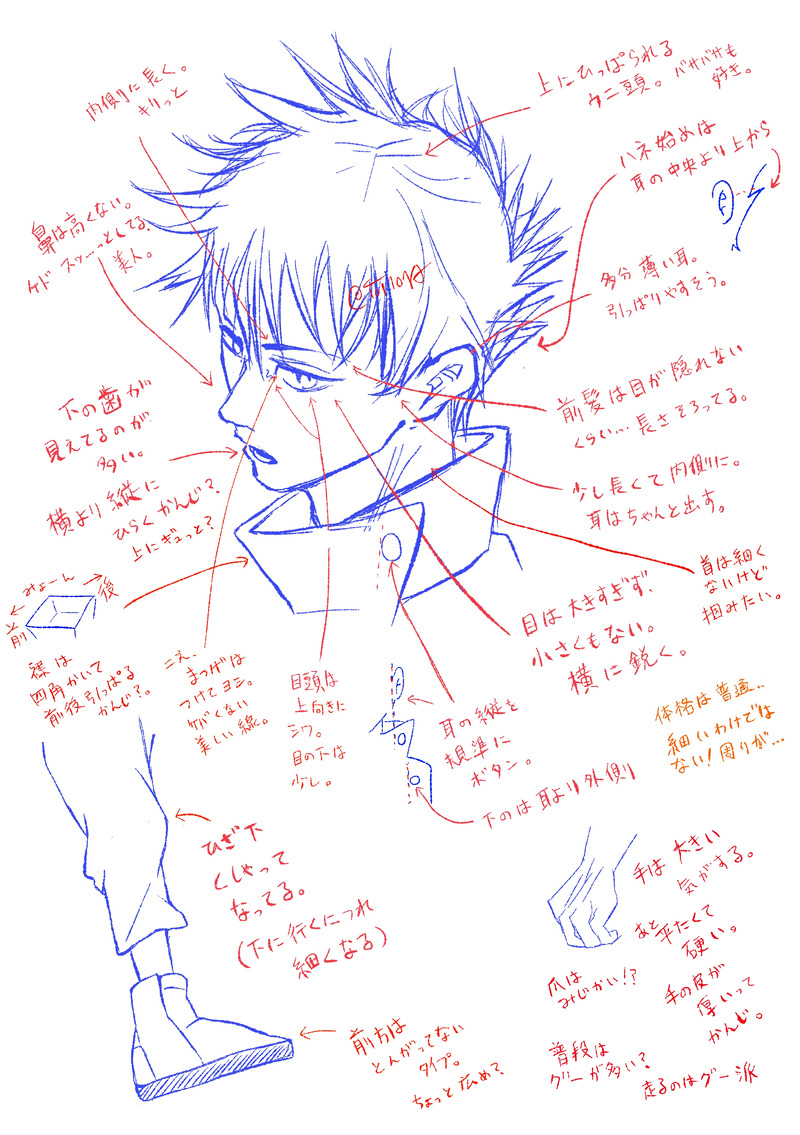 内側に長く。
キリっと
上にひっぱられる
ウニ頭。バサバサも
好き。
ハネ始めは
耳の中央より上から
鼻は高くない。
ケド スッ……っとしてる。
美人。
多分薄い耳。
引っぱりやすそう。
前髪は目が隠れない
くらい…長さそろってる。
下の歯が
見えてるのが
多い。
横より縦に
ひらくかんじ？
上にギュっと？
少し長くて内側に。
耳はちゃんと出す。
首は細く
ないけど
掴みたい。
みょーん
前
後
襟は
四角かいて
前後引っぱる
かんじ？。
こえ、
まつげは
つけてヨシ。
ケバくない
美しい線。
目頭は
上向きに
シワ。
目の下は
少し。
目は大きすぎず、
小さくもない。
横に鋭く。
耳の縦を
規準に
ボタン。
下のは耳より外側
体格は普通…
細いわけでは
ない！周りが…
ひざ下
くしゃって
なってる。
(下に行くにつれ
細くなる)
手は大きい
気がする。
あと平たくて
硬い。
手の皮が
厚いって
かんじ。
爪は
みじかい！？
普段は
グーが多い？
走るのはグー派
前方は
とんがってない
タイプ。
ちょっと広め？